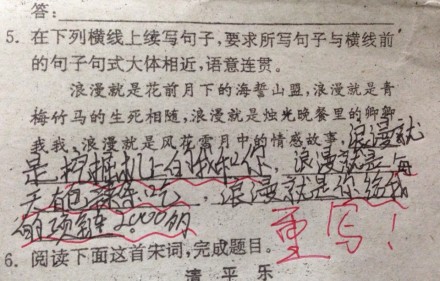 答:
5. 在下列横线上续写句子,要求所写句子与横线前
的句子句式大体相近,语意连贯。
浪漫就是花前月下的海誓山盟,浪漫就是青
梅竹马的生死相随,浪漫就是烛光晚餐里的卿卿
我我,浪漫就是风花雪月中的情感故事,浪漫就
是挖掘机上的我和你,浪漫就是每
天有包辣条吃,浪漫就是你给我
的项链2000多
重写!
6. 阅读下面这首宋词,完成题目。
清平乐